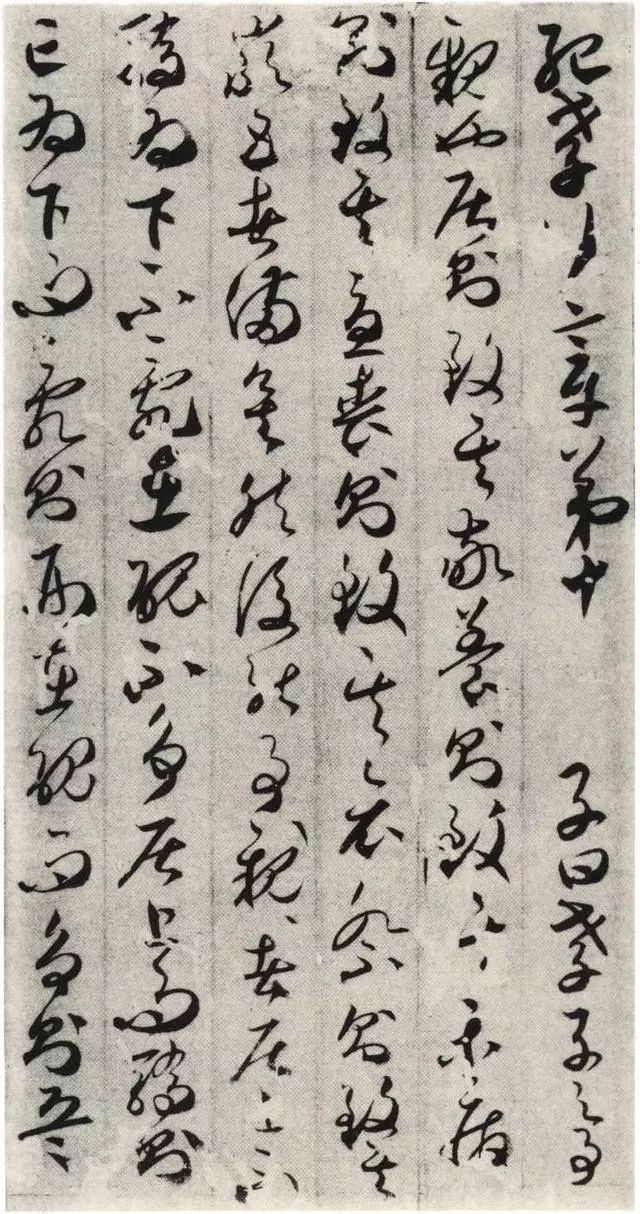 紀孝行章第十 子曰孝子之事
親也居則致其敬養則致其樂病
則致其憂喪則致其哀祭則致其
嚴五者備矣然後能事親者居上不
驕為下不亂在醜不爭居上而驕則
亡為下而亂則刑在醜而爭則兵